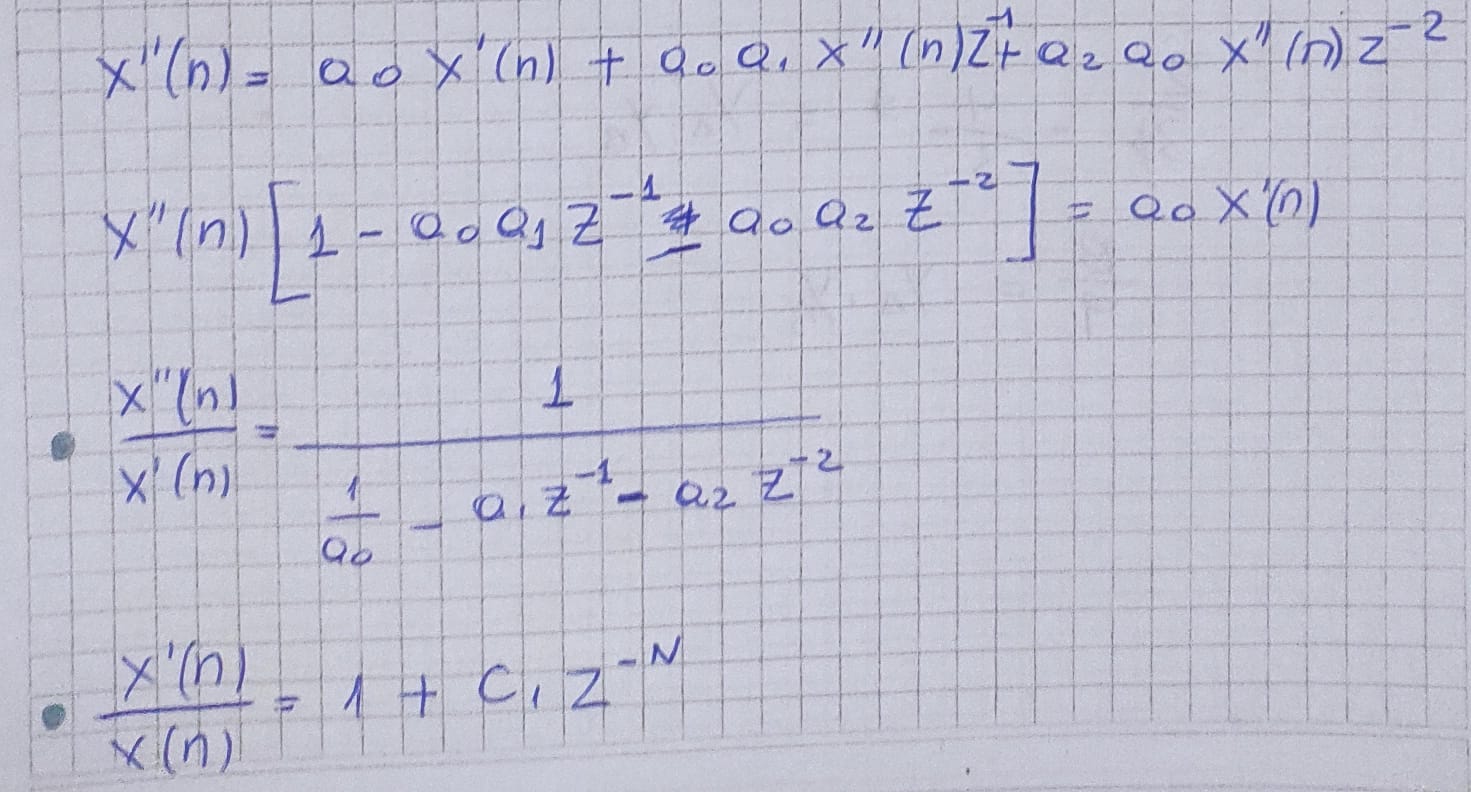 x''(n) = a₀ x'(n) + a₀ a₁ x''(n) z⁻¹ + a₂ a₀ x''(n) z⁻²
x''(n) [1 - a₀ a₁ z⁻¹ - a₀ a₂ z⁻²] = a₀ x'(n)
x''(n)/x'(n) = 1/(1/a₀ - a₁ z⁻¹ - a₂ z⁻²)
x'(n)/x(n) = 1 + c₁ z⁻ᴺ